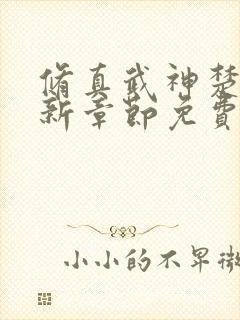 脩真武神楚
新章節免費
小小的不早微